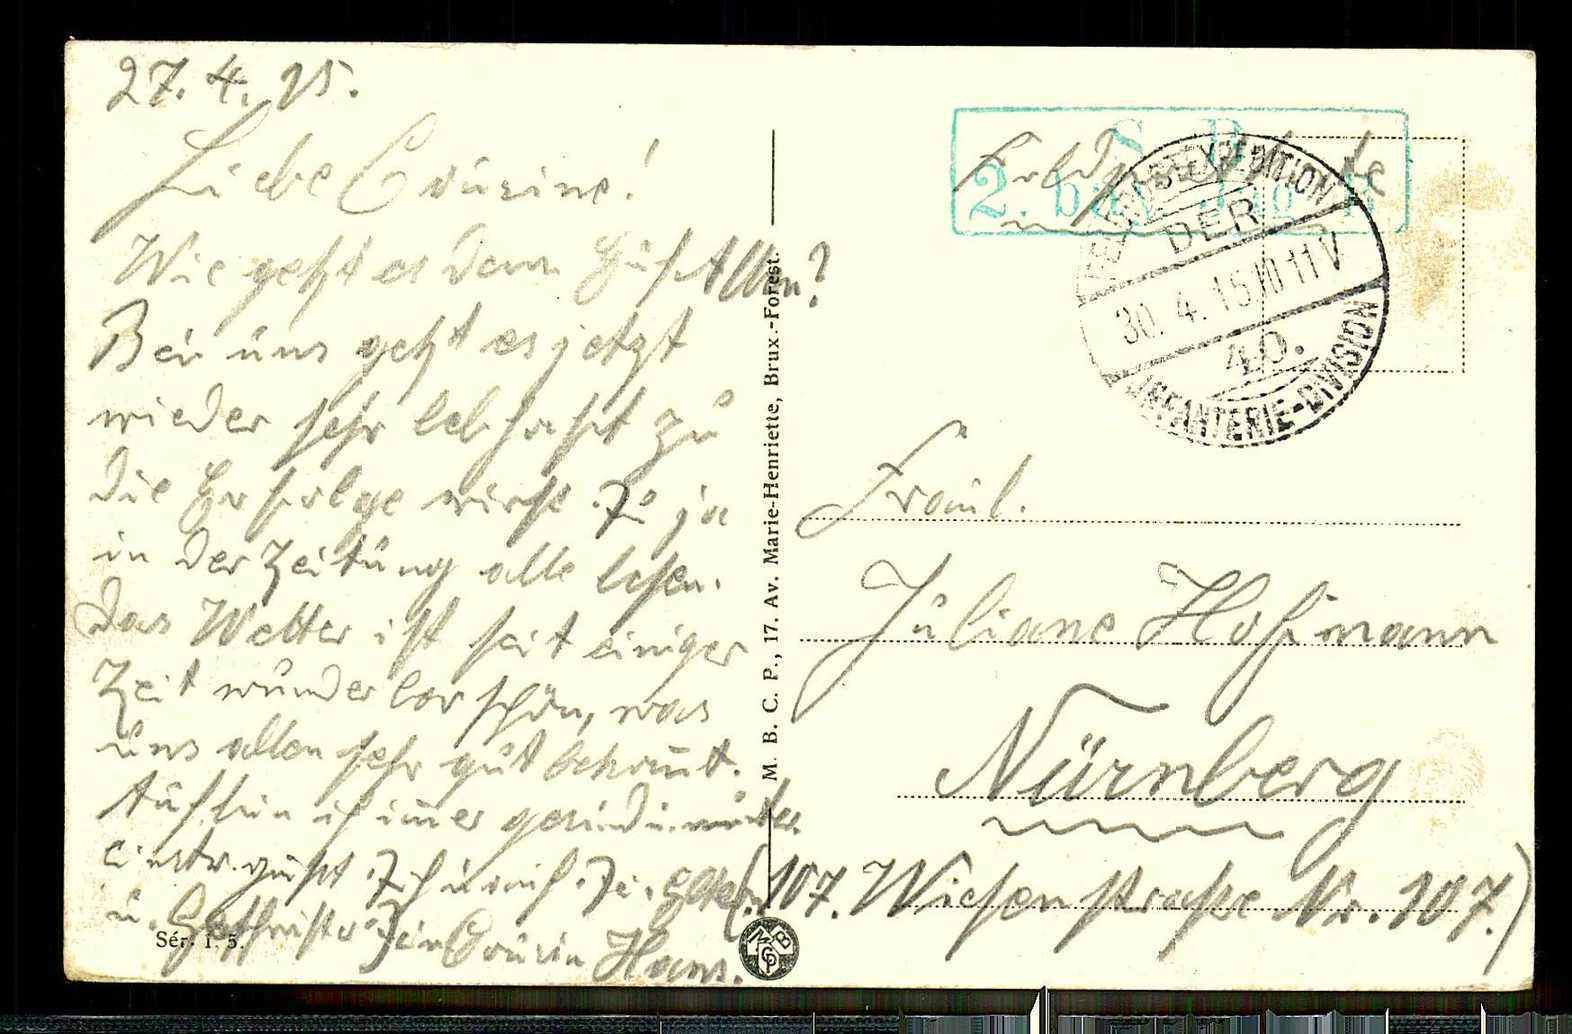 27. 4. 15.
Liebe Cousine!
Wie geht es denn Euch Allen?
Bei uns geht es jetzt
wieder sehr lebhaft zu
die Erfolge wirst Du ja
in der Zeitung alle lesen.
Das Wetter ist seit einiger
Zeit wunderbar schön, was
uns allen sehr gut bekommt.
bin ich immer gesund u. munter
grüßt Dich u. Eltern
u. Geschwister Dein Cousin Hans.
Sér. 1. 5.
M. B. C. P., 17. Av. Marie-Henriette, Brux.-Forest.
MBCP
S. B.
2. bay. R
Feldpostkarte
FELDPOSTEXPEDITION
DER
30. 4. 15 11 V
40.
INFANTERIE-DIVISION
Fräul.
Juliane Hofmann
Nürnberg
(107. Wiesenstraße Nr. 107.)